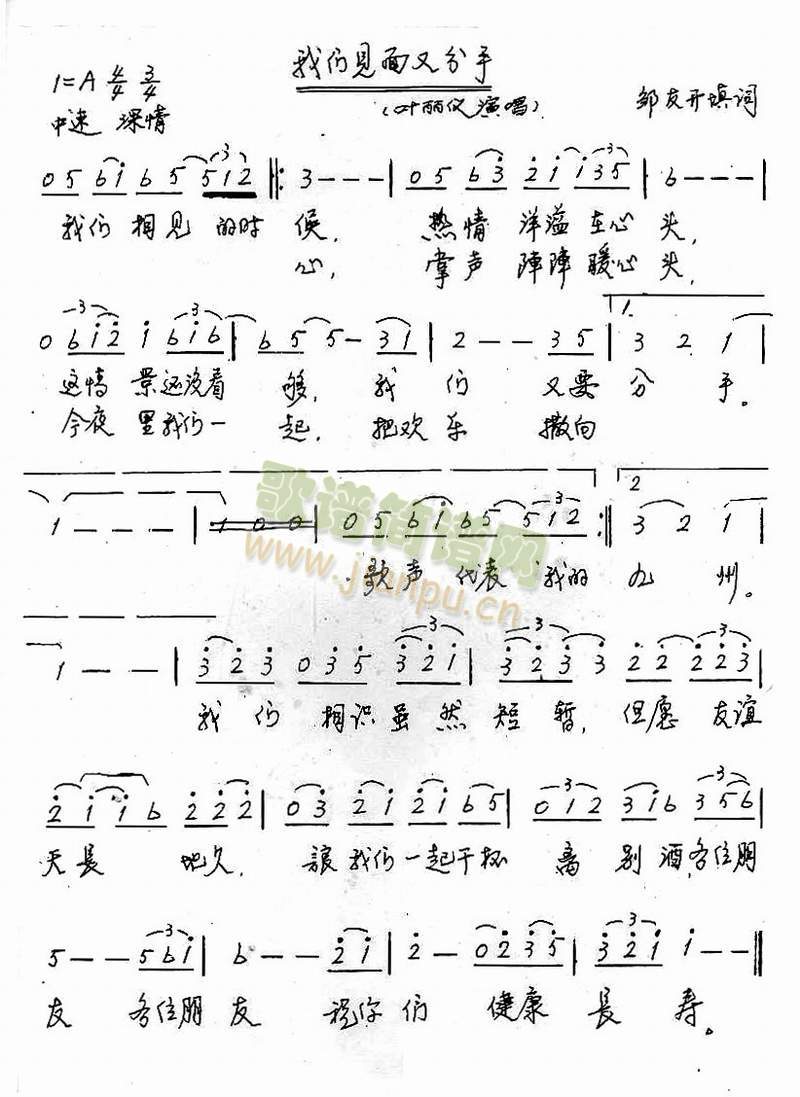 我们见面又分手
1=A 4/4 3/4
(叶丽仪演唱)
邹友开填词
中速 深情
0 5 6 i 6 5 5 1 2 ‖: 3 - - - | 0 5 6 3 2 i i 3 5 | 6 - - - |
我们 相见 的时 候, 热情 洋溢 在心 头,
心, 掌声 陣陣 暖心 头,
0 6 i 2 i 6 i 6 | 6 5 5 - 3 1 | 2 - - 3 5 | 1. 3 2 1 |
这情 景还没看 够, 我 们 又要 分 手。
今夜 里我们一 起, 把欢 乐 撒向
1 - - - | 1 0 0 | 0 5 6 i 6 5 5 1 2 :‖ 2 3 2 1 |
歌谱简谱网
www.jianpu.cn
歌声 代表 我的 九 州。
1 - - | 3 2 3 0 3 5 3 2 i | 3 2 3 3 2 2 2 2 3 |
我 们 相识 虽 然 短 暂, 但愿 友谊
2 i i 6 2 2 2 | 0 3 2 i 2 i 6 5 | 0 1 2 3 i 6 3 5 6 |
天長 地久, 讓我们一起干杯 离别酒,各位朋
5 - - 5 6 i | 6 - - 2 i | 2 - 0 2 3 5 | 3 2 i i - - ‖
友 各位朋 友 祝你 们 健康 長 寿。